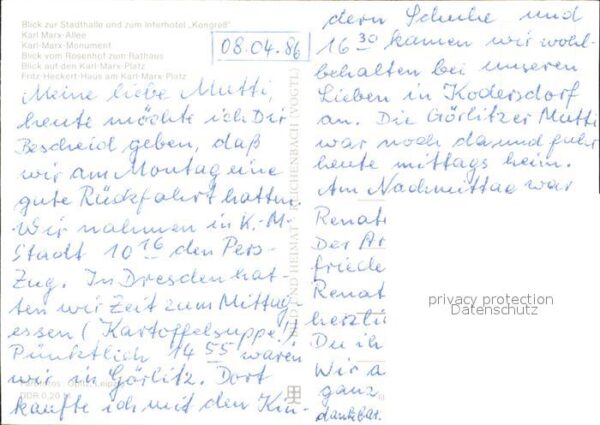 Blick zur Stadthalle und zum Interhotel „Kongreß"
Karl Marx-Allee
Karl-Marx-Monument
Blick vom Rosenhof zum Rathaus
Blick auf den Karl-Marx-Platz
Fritz Heckert-Haus am Karl-Marx-Platz
08.04.86
Meine liebe Mutti,
heute möchte ich Dir
Bescheid geben, daß
wir am Montag eine
gute Rückfahrt hatten.
Wir nahmen in K.-M.-
Stadt 10 16 den Pers-
Zug. In Dresden hat-
ten wir Zeit zum Mittag-
essen (Kartoffelsuppe!)
Pünktlich 14 55 waren
wir in Görlitz. Dort
kaufte ich mit den Kin-
DDR 0,20 M
BILD UND HEIMAT REICHENBACH (VOGTL)
dern Schuhe und
16 30 kamen wir wohl-
behalten bei unseren
Lieben in Kodersdorf
an. Die Görlitzer Mutti
war noch da und fuhr
heute mittags heim.
Am Nachmittag war
Renat
Der Ar
friede
Renat
herzli
Du ih
Wir a
ganz
dankbar.
privacy protection
Datenschutz